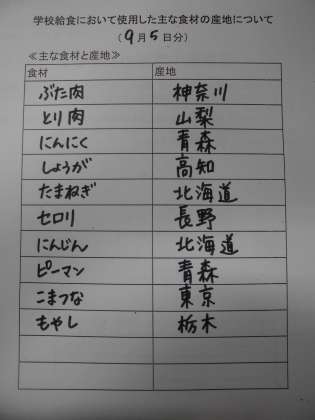 学校給食において使用した主な食材の産地について
（9月5日分）
≪主な食材と産地≫
食材 産地
ぶた肉 神奈川
とり肉 山梨
にんにく 青森
しょうが 高知
たまねぎ 北海道
セロリ 長野
にんじん 北海道
ピーマン 青森
こまつな 東京
もやし 栃木